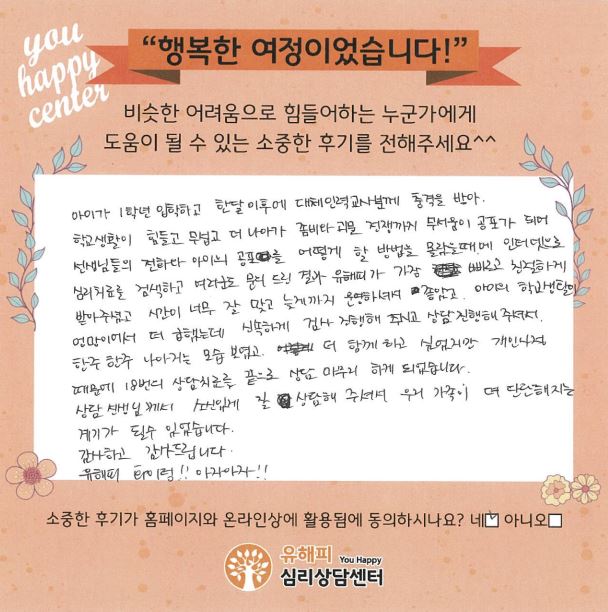 you
happy
center
“행복한 여정이었습니다!”
비슷한 어려움으로 힘들어하는 누군가에게
도움이 될 수 있는 소중한 후기를 전해주세요^^
아이가 1학년 입학하고 한달이후에 대체인력교사분께 충격을 받아.
학교생활이 힘들고 무섭고 더 나아가 좀비나 괴물 전쟁까지 무서움이 공포가 되어
선생님들의 전화와 아이의 공포를 어떻게 할 방법을 몰랐을때에 인터넷으로
심리치료를 검색하고 여러군데 문의 드린 결과 유해피가 가장 빠르고 친절하게
받아주셨고 시간이 너무 잘 맞고 늦게까지 운영하셔서 좋았고. 아이의 학교생활이
엉망이어서 더 급했는데 신속하게 검사 진행해 주시고 상담 진행해 주셔서.
한주 한주 나아지는 모습 보였고. 더 함께 하고 싶었지만 개인사정
때문에 18번의 상담치료를 끝으로 상담 마무리 하게 되었습니다.
상담 선생님께서 소신있게 잘 상담해 주셔서 우리 가족이 더 단단해지는
계기가 될수 있었습니다.
감사하고 감사드립니다.
유해피 화이팅!! 아자아자!!
소중한 후기가 홈페이지와 온라인상에 활용됨에 동의하시나요? 네☑ 아니오☐
유해피 You Happy
심리상담센터